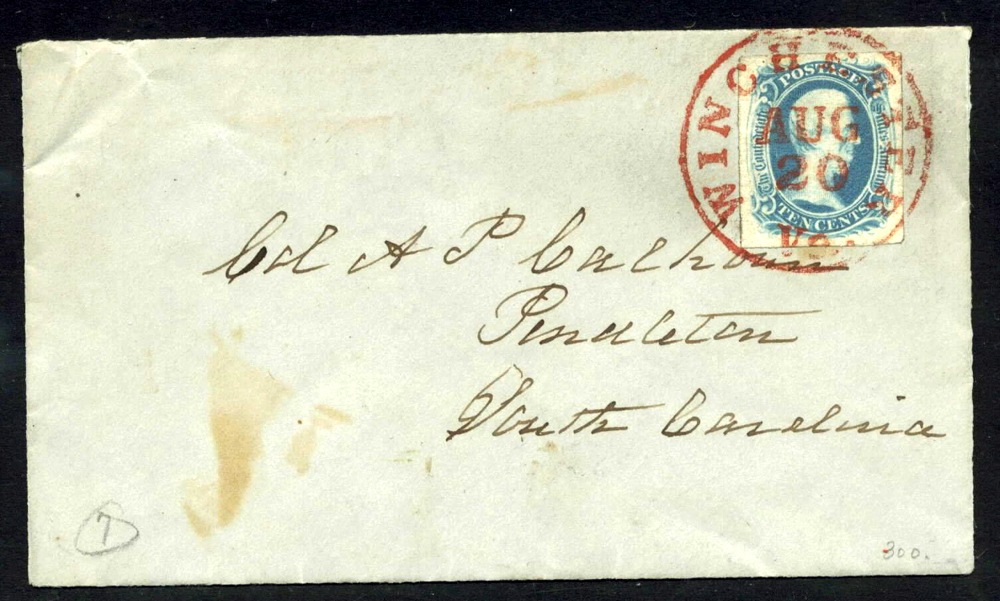 WINCHESTER
AUG
20
Va.
POSTAGE
The Confederate States of America
TEN CENTS
Col A P Calhoun
Pendleton
South Carolina
7
300.